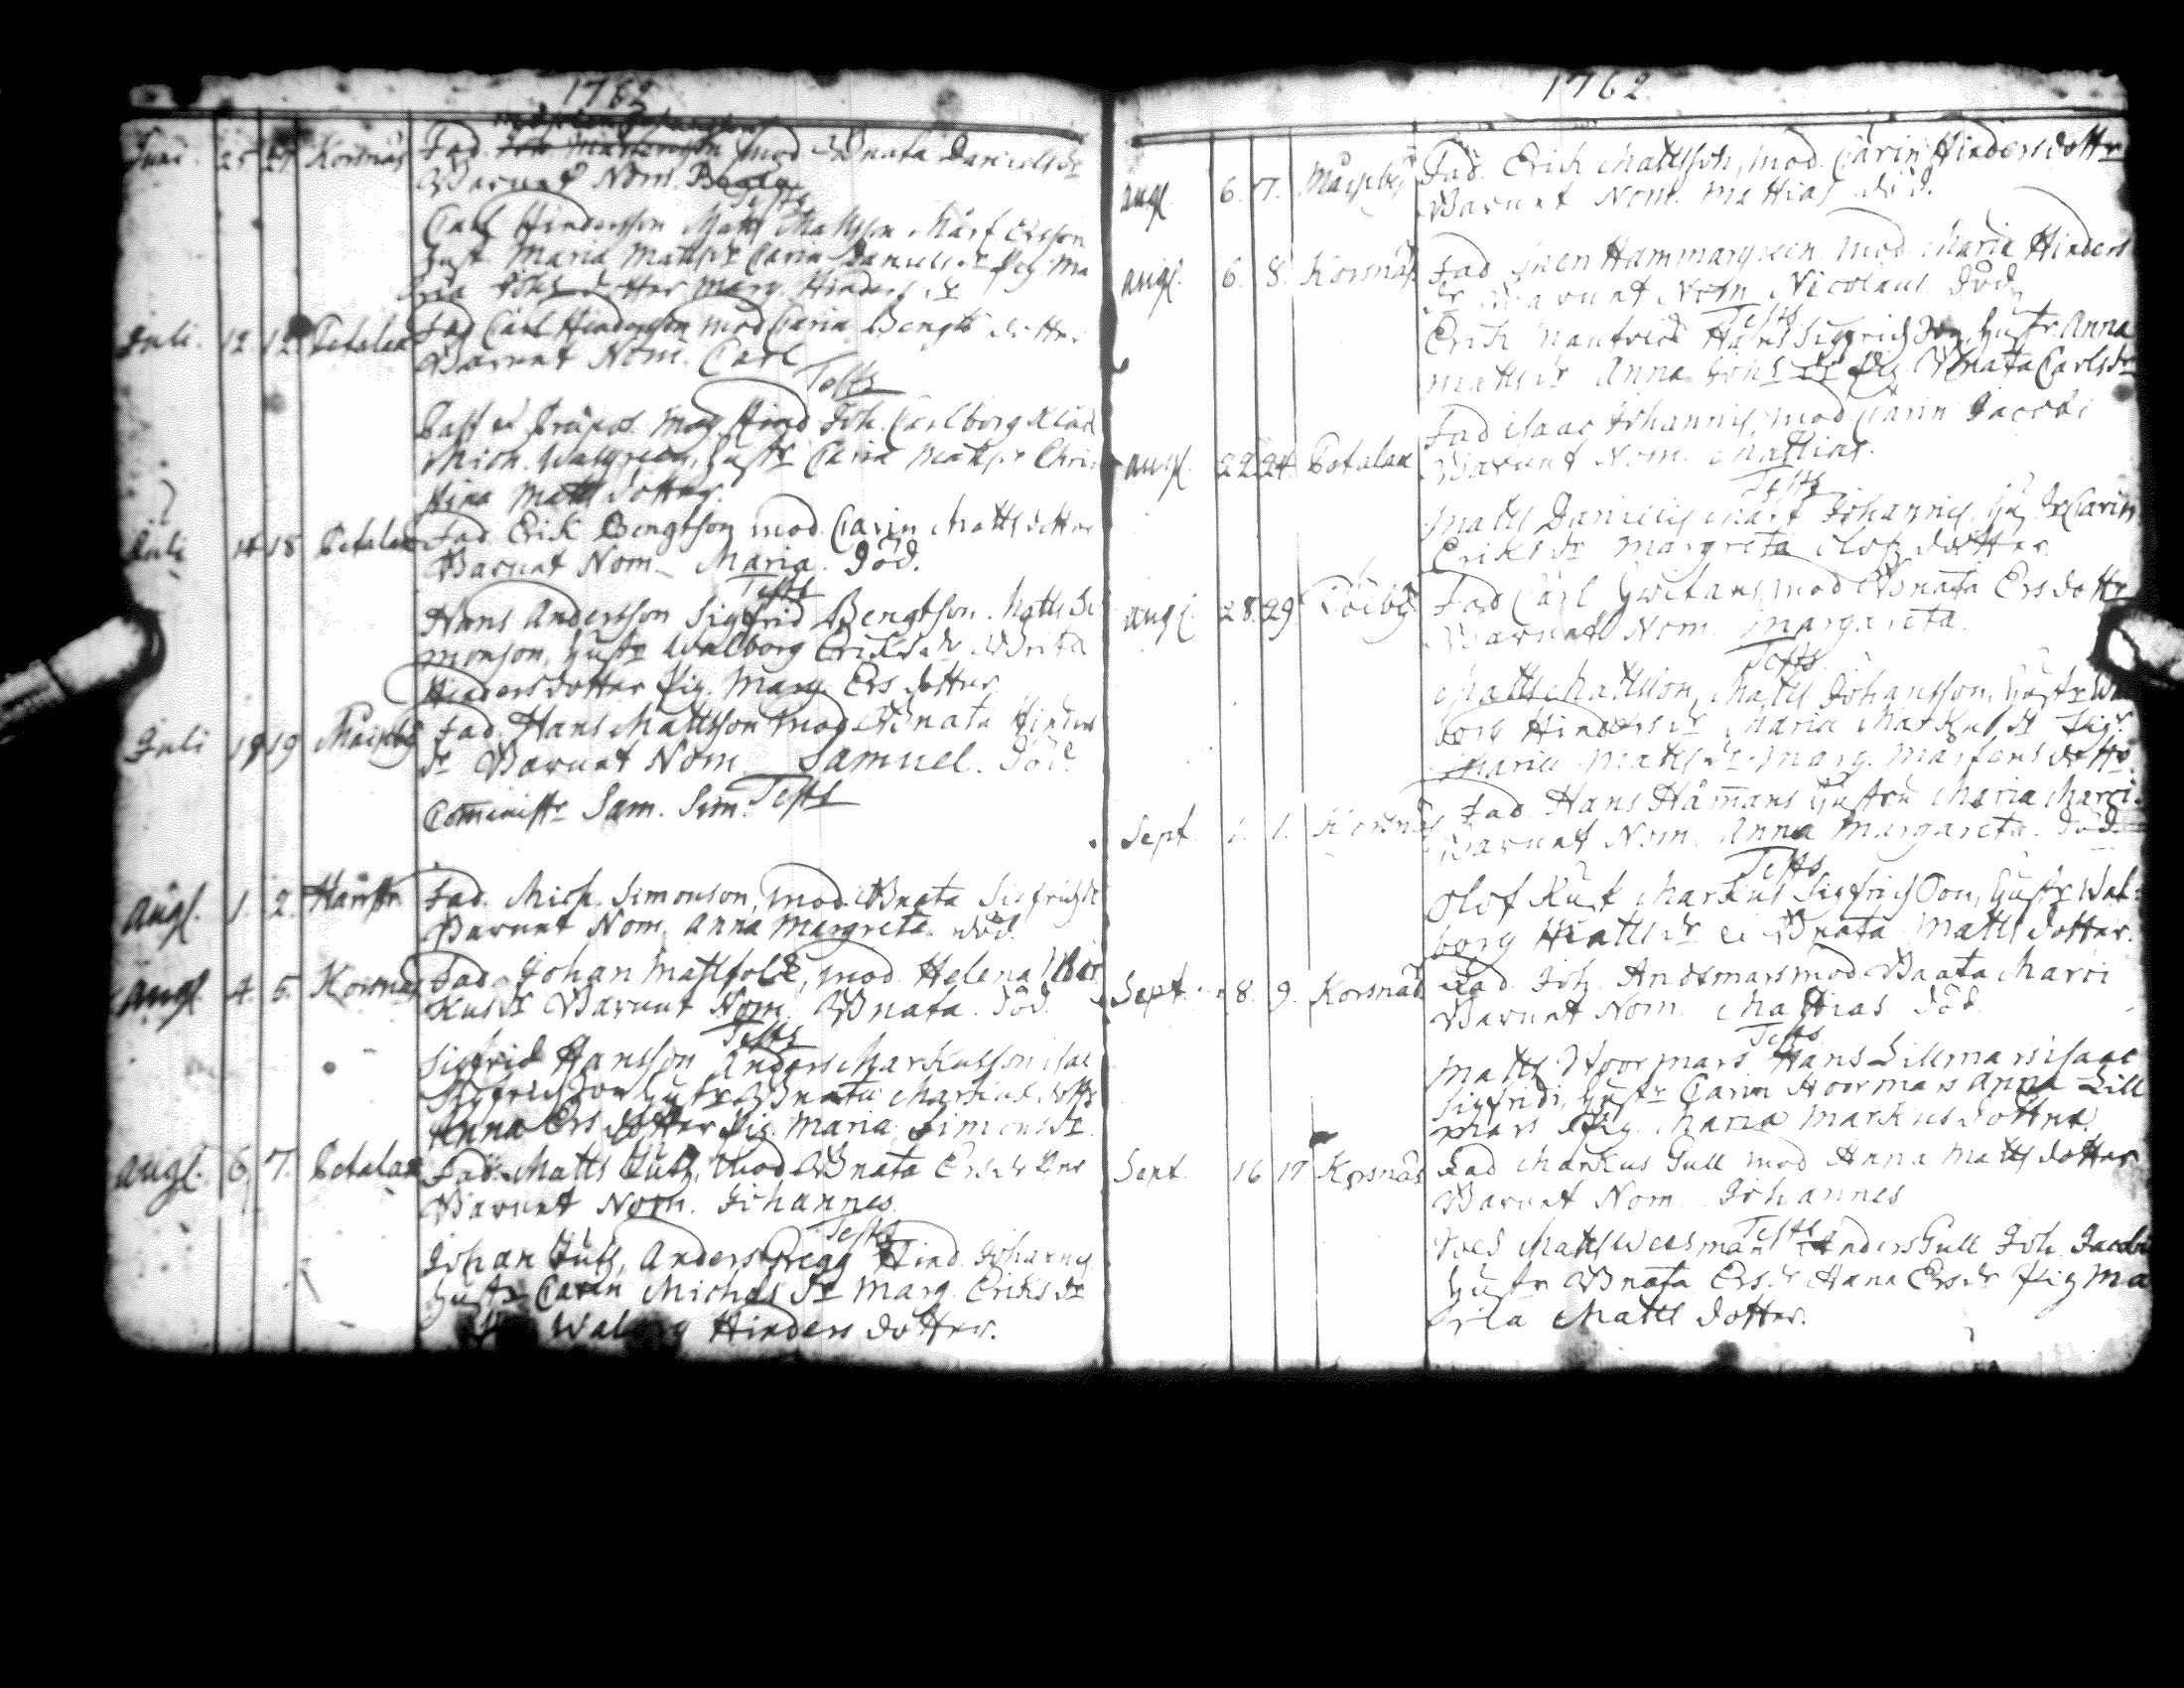 1762
Juni. 25 27 Korsnäs Fad. mod Brata Daniels dr
Barnet Nom.
Tests
Carl Hindersson Matts Mattsson Mårt Ersson
Hust Maria Matts dr Carin Daniels dr Pig Ma
ria Joh dotter Marg. Hinders dr
Juli. 12 12 Petalax Fad Carl Hindersson mod Carin Bengts dotter
Barnet Nom. Carl
Tests
Mag. Joh. Carlborg
Mich. Hustr Carin Matts dr Chri
stina Matts dotter.
Juli 14 18 Petalax Fad. Erik Bengtson mod. Carin Matts dotter
Barnet Nom. Maria. Död.
Tests
Hans Andersson Sigfrid Bengtson. Matts Si
monson, Hustr Walborg Eriks dr Brita
Hindersdotter Pig. Marg Ers dotter
Juli 18 19 Maisby Fad. Hans Mattsson mod Brata Hinders
dr Barnet Nom Samuel. Död.
Tests
Comministr Sam. Sim.
Augl. 1. 2. Fad. Mich. Simonson, mod. Brata Sigfrids dr
Barnet Nom. Anna Margreta. död.
Augl. 4. 5. Korsnäs Fad. Johan Mattsfolk, mod. Helena Mar
kus dr Barnet Nom. Brata. Död.
Tests
Sigfrid Hansson Anders Markusson Isac
Sigfridson Hustr Brata Markus dottr
Anna Ers dotter Pig. Maria Simons dr
augl. 6. 7. Petalax Fad. Matts mod Brata Ers dr
Barnet Nom. Johannes.
Tests
Johan Anders Gregg Hind. Johannis
Hustr Carin Michels dr Marg. Eriks dr
Walborg Hinders dotter.
1762
augl. 6. 7. Maisby Fad. Erik Mattsson, mod. Carin Hindersdottr
Barnet Nom. Mattias död.
augl. 6. 8. Korsnäs Fad Sven Hammarqveen mod. Maria Hinders
dr Barnet Nom Nicolaus. Död.
Tests
Erik Hans Sigfridson, Hustr. Anna
Matts dr Anna Joh dr Pig Brata Carls dr
augl. 22 24 Petalax Fad Isaac Johannis, mod Carin Jacobi
Barnet Nom. Mattias.
Tests
Matts Danielis Mårt Johannis, Hustr Carin
Eriks dr Margreta Olofs dotter
augl. 28. 29. Töiby Fad Carl mod Brata Ersdottr
Barnet Nom. Margareta.
Tests
Matts Mattsson, Matts Johansson, Hustr Wal
borg Hinders dr Maria Markus dr Pigr
Maria Matts dr Marg. Mårtens dottr
Sept. 1. 1. Korsnäs Fad. Hans Håmans Hustru Maria Marci.
Barnet Nom. Anna Margareta. Död.
Tests
Olof Kust Markus Sigfridson, Hustr Wal-
borg Matts dr & Brata Matts dotter.
Sept. 8. 9. Korsnäs Fad. Joh. Andsmars mod. Brata Marci
Barnet Nom. Mattias Död.
Tests
Matts Hoormars Hans Lillmars Isaac
Sigfridi, Hustr Carin Hoormars Anna Lill
mars Pig. Maria Markus dottra
Sept. 16 17 Korsnäs Fad Markus Gull mod Anna Matts dotter
Barnet Nom. Johannes
Tests
Matts Weesman Anders Gull Joh. Jacobi
Hustr Brata Ers dr Anna Ers dr Pig Ma
ria Matts dotter.